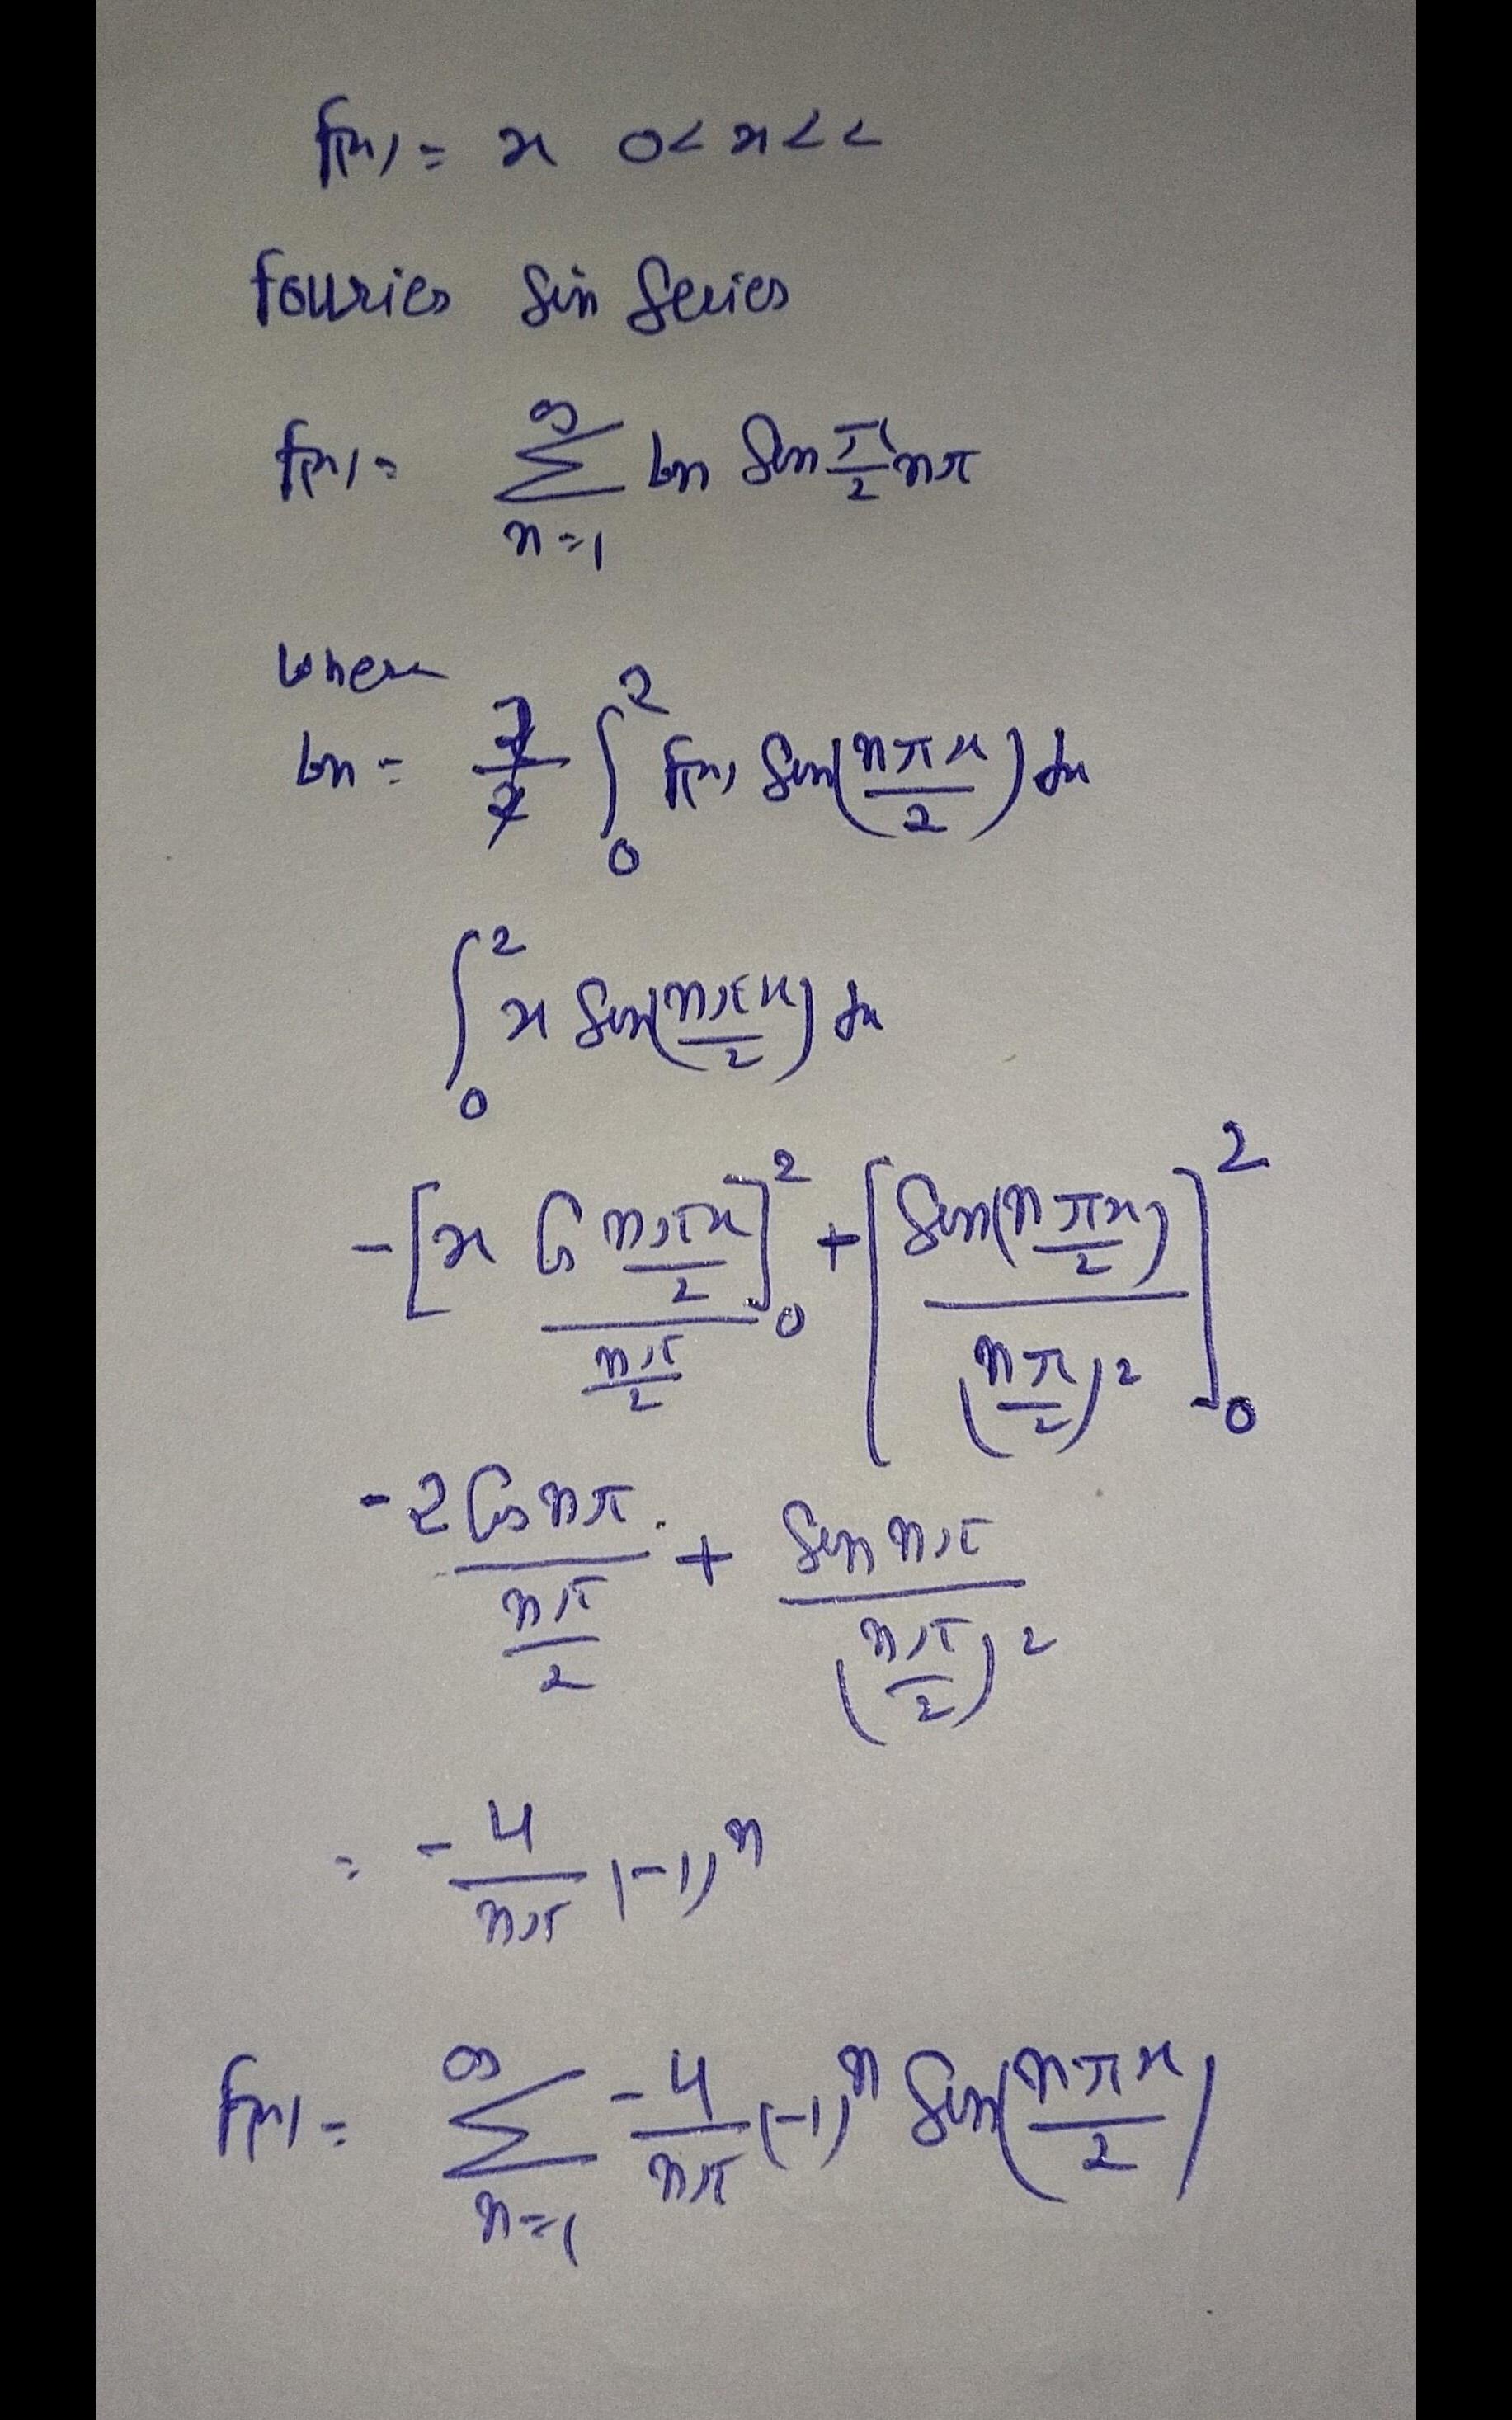 f(x) = x 0 < x < 2
Fourier Sin Series
f(x) = ∑_{n=1}^{∞} bn Sin π/2 nx
where
bn = 2/2 ∫_0^2 f(x) Sin(nπx/2) dx
∫_0^2 x Sin(nπx/2) dx
-[x Cos (nπx/2) / (nπ/2)]_0^2 + [Sin(nπx/2) / (nπ/2)^2]_0^2
-2 Cos nπ / (nπ/2) + Sin nπ / (nπ/2)^2
= -4/nπ (-1)^n
f(x) = ∑_{n=1}^{∞} -4/nπ (-1)^n Sin(nπx/2)